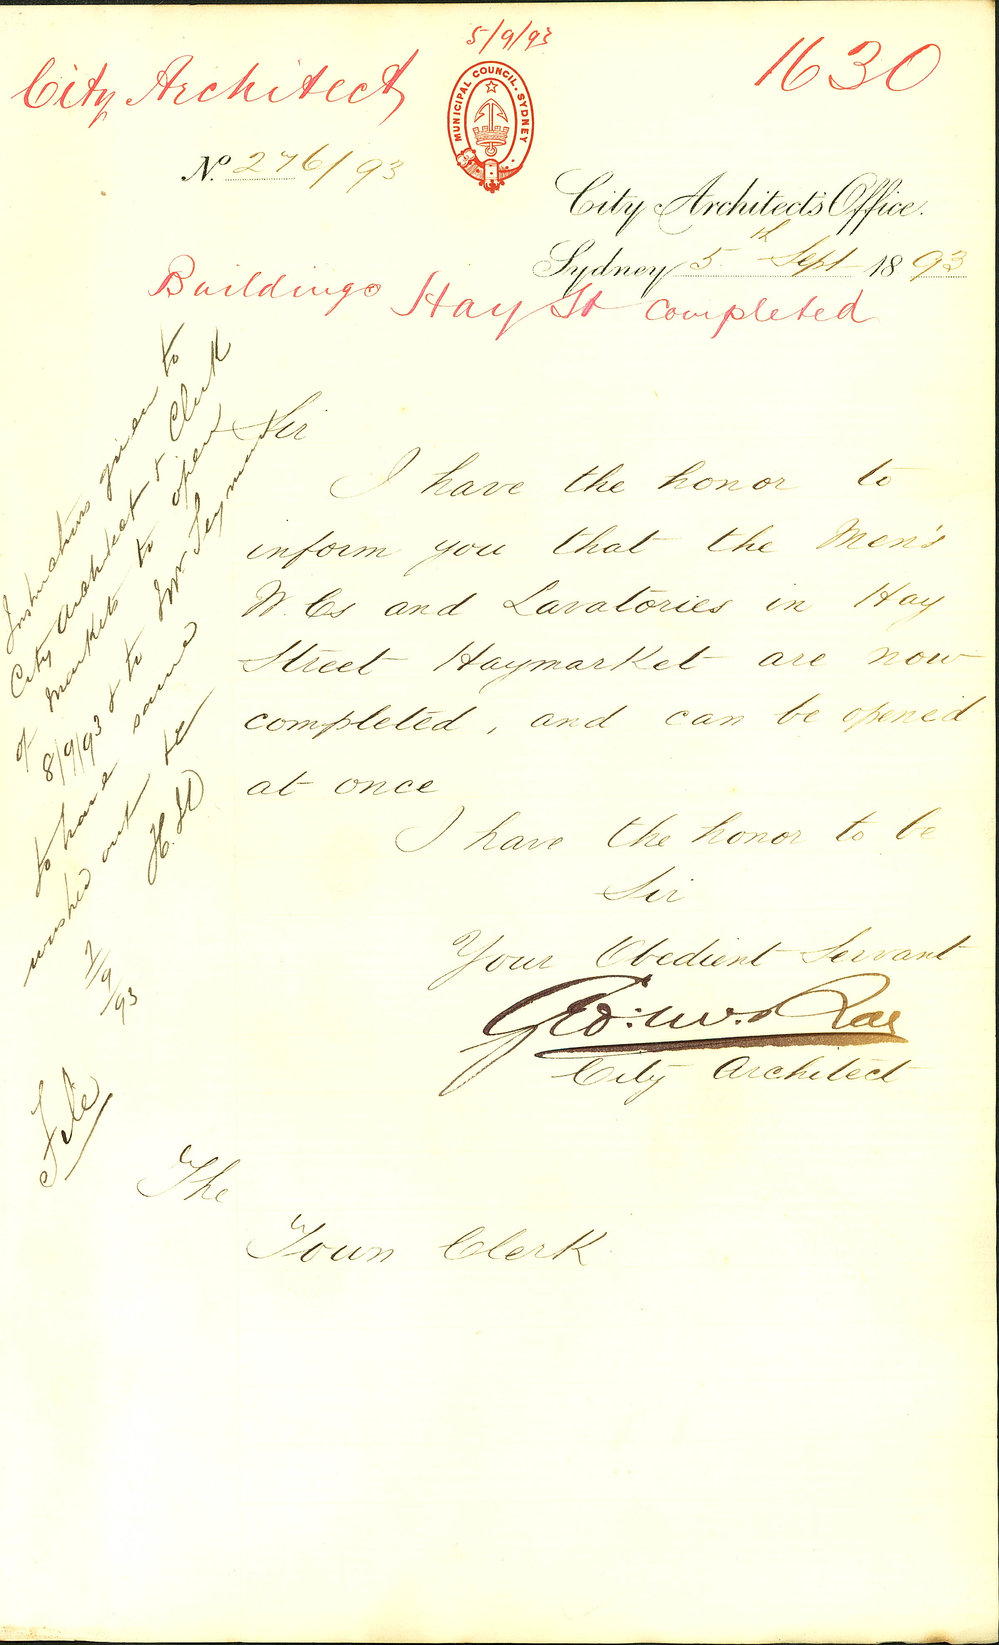 5/9/93
City Architect
1630
MUNICIPAL COUNCIL. SYDNEY
No. 276/93
City Architect's Office.
Sydney 5th Sept 1893
Buildings Hay St completed
Sir
I have the honor to
inform you that the Men's
W.Cs and Lavatories in Hay
Street Haymarket are now
completed, and can be opened
at once
I have the honor to be
Sir
Your Obedient Servant
Geo: McRae
City Architect
The
Town Clerk
Instructions given to
City Architect & Clerk
of Markets to open
8/9/93 & to Mr Seymour
to have same
washed out
H.D
7/9/93
File